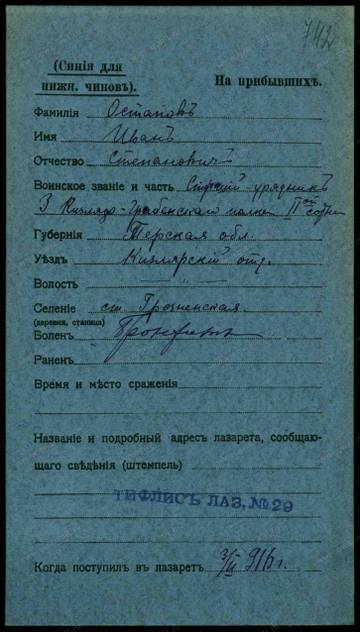 7112
(Синія для
нижн. чиновъ).
На прибывшихъ.
Фамилія Остаповъ
Имя Иванъ
Отчество Степановичъ
Воинское званіе и часть Старшій урядникъ
3 Кизляро-Гребенскаго полка сотни
Губернія Терская обл.
Уѣздъ Кизлярскій отд.
Волость
Селеніе ст. Грозненская.
(деревня, станица)
Боленъ Бронхитъ
Раненъ
Время и мѣсто сраженія
Названіе и подробный адресъ лазарета, сообщаю-
щаго свѣдѣнія (штемпель)
ТИФЛИСЪ ЛАЗ. № 29
Когда поступилъ въ лазаретъ 916 г.